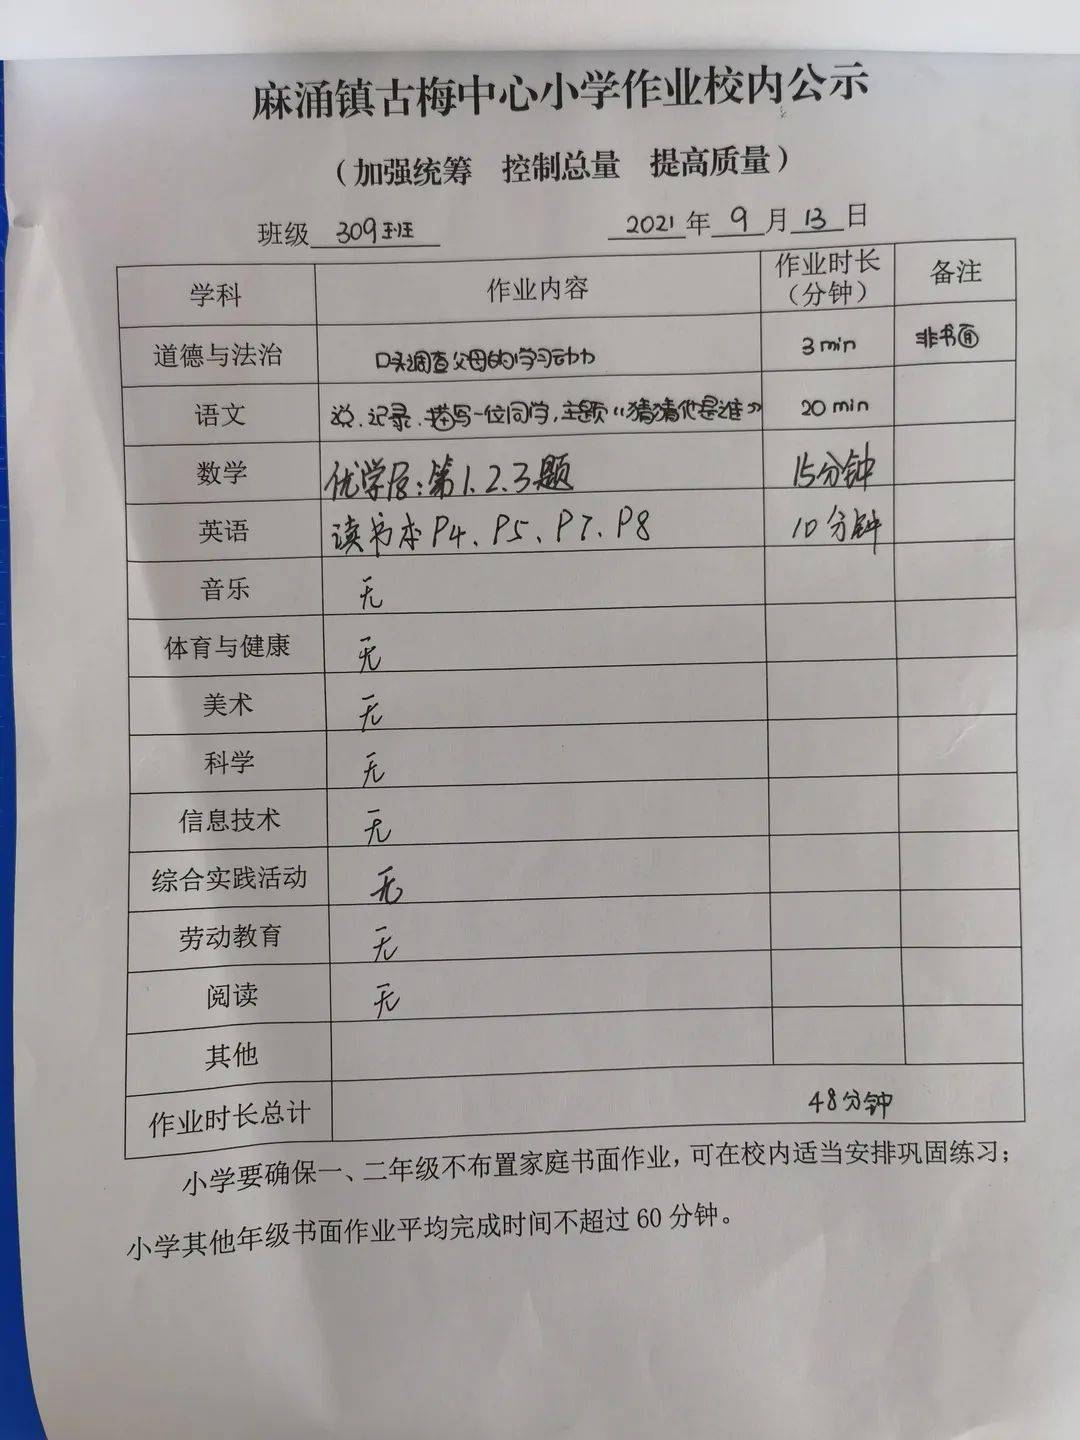 麻涌镇古梅中心小学作业校内公示
（加强统筹 控制总量 提高质量）
班级 309班 2021年 9 月 13 日
学科 作业内容 作业时长（分钟） 备注
道德与法治 口头调查父母的学习动力 3min 非书面
语文 说、记录、描写一位同学,主题《猜猜他是谁》 20min
数学 优学店:第1.2.3题 15分钟
英语 读书本P4、P5、P7、P8 10分钟
音乐 无
体育与健康 无
美术 无
科学 无
信息技术 无
综合实践活动 无
劳动教育 无
阅读 无
其他
作业时长总计 48分钟
小学要确保一、二年级不布置家庭书面作业，可在校内适当安排巩固练习；
小学其他年级书面作业平均完成时间不超过 60 分钟。